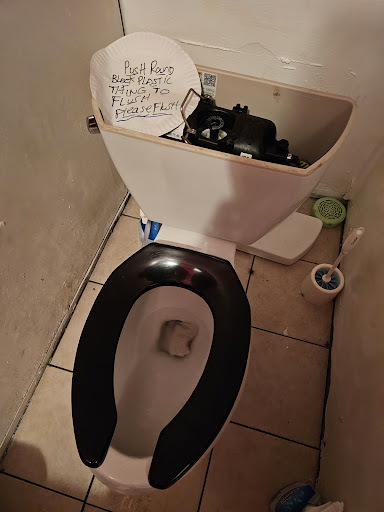 PusH Round
Black PLASTIC
THING TO
FLUSH
Please Flush